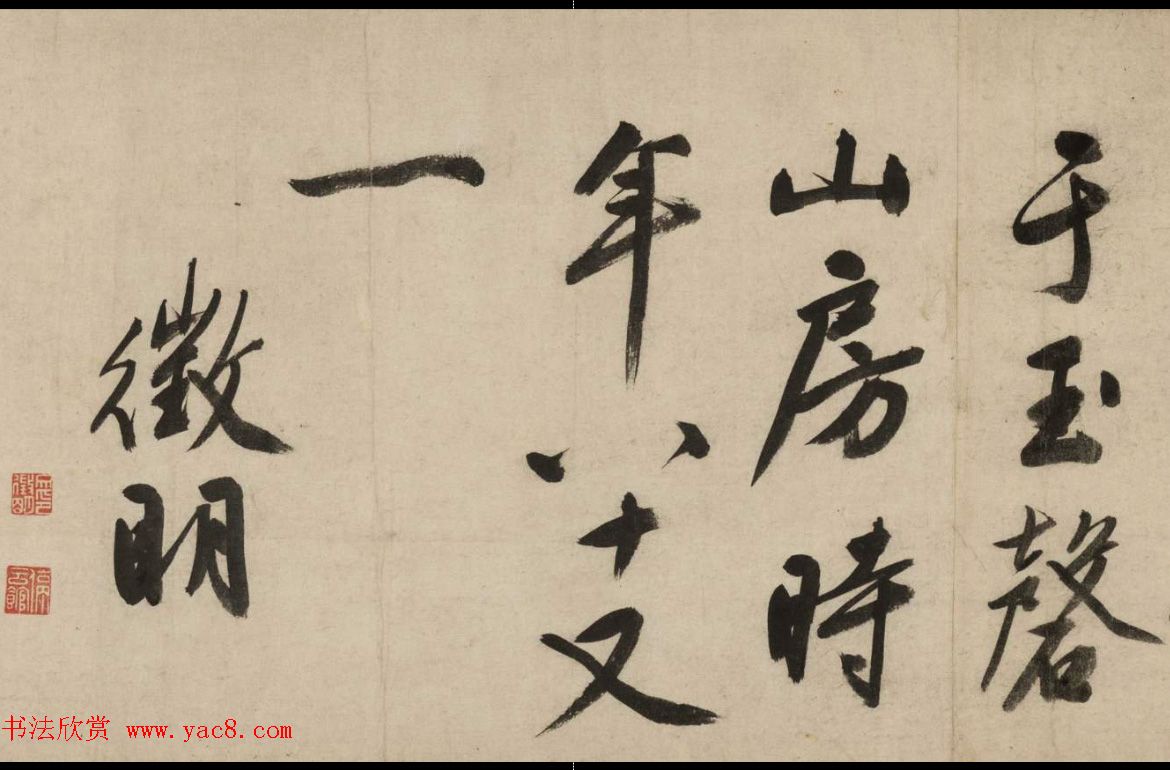 于玉磬
山房時
年八十又
一
徵明
书法欣赏 www.yac8.com